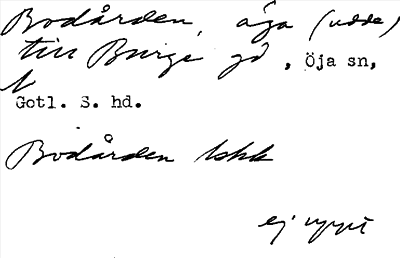 Bodården, äga (udde)
till Burge gd, Öja sn,
Gotl. S. hd.
Bodården Iskk
ej uppt